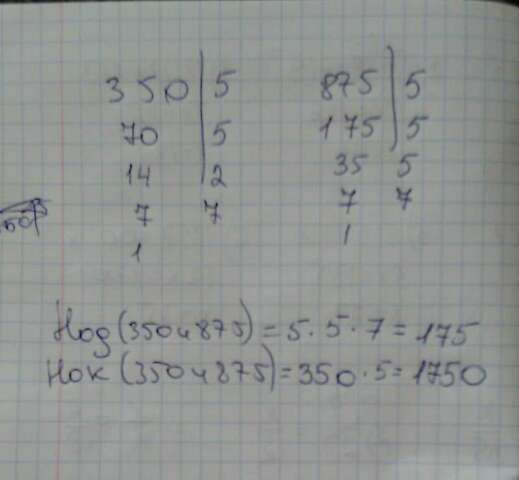 350 5 875 5
70 5 175 5
14 2 35 5
7 7 7 7
1 1
Нод (350 и 875) = 5 · 5 · 7 = 175
Нок (350 и 875) = 350 · 5 = 1750